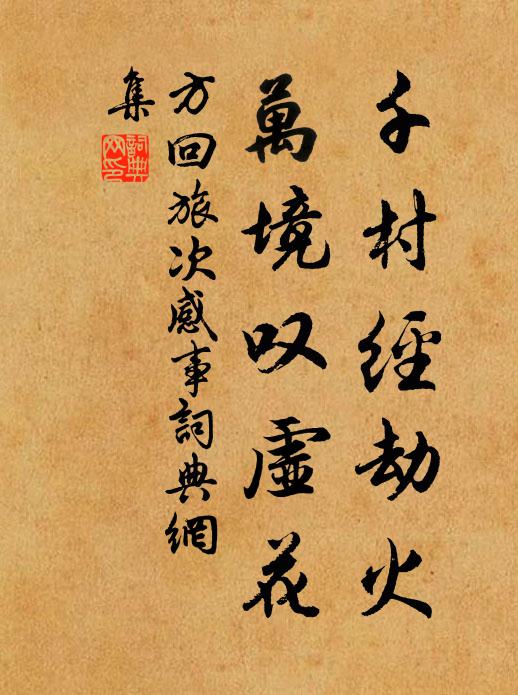 千村經劫火
萬境叹虛花
方回旅次感事詞典網
集
詞典
网印